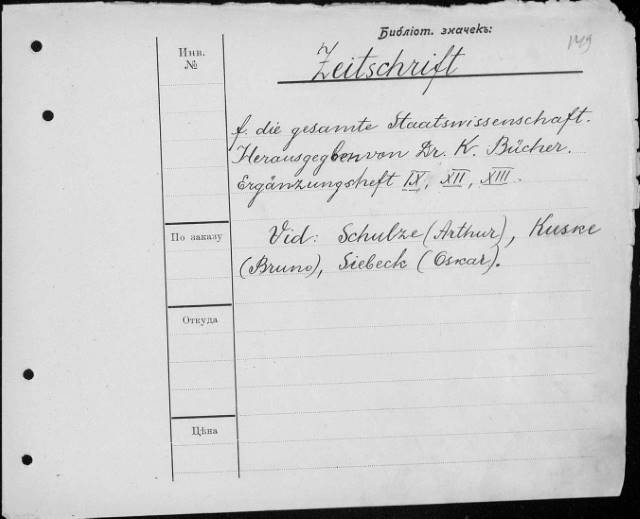 Библіот. значекъ:
149
Инв.
№
Zeitschrift
f. die gesamte Staatswissenschaft.
Herausgegben von Dr. K. Bücher.
Ergänzungsheft IX, XII, XIII.
По заказу
Vid: Schulze (Arthur), Kuske
(Bruno), Siebeck (Oskar).
Откуда
Цѣна